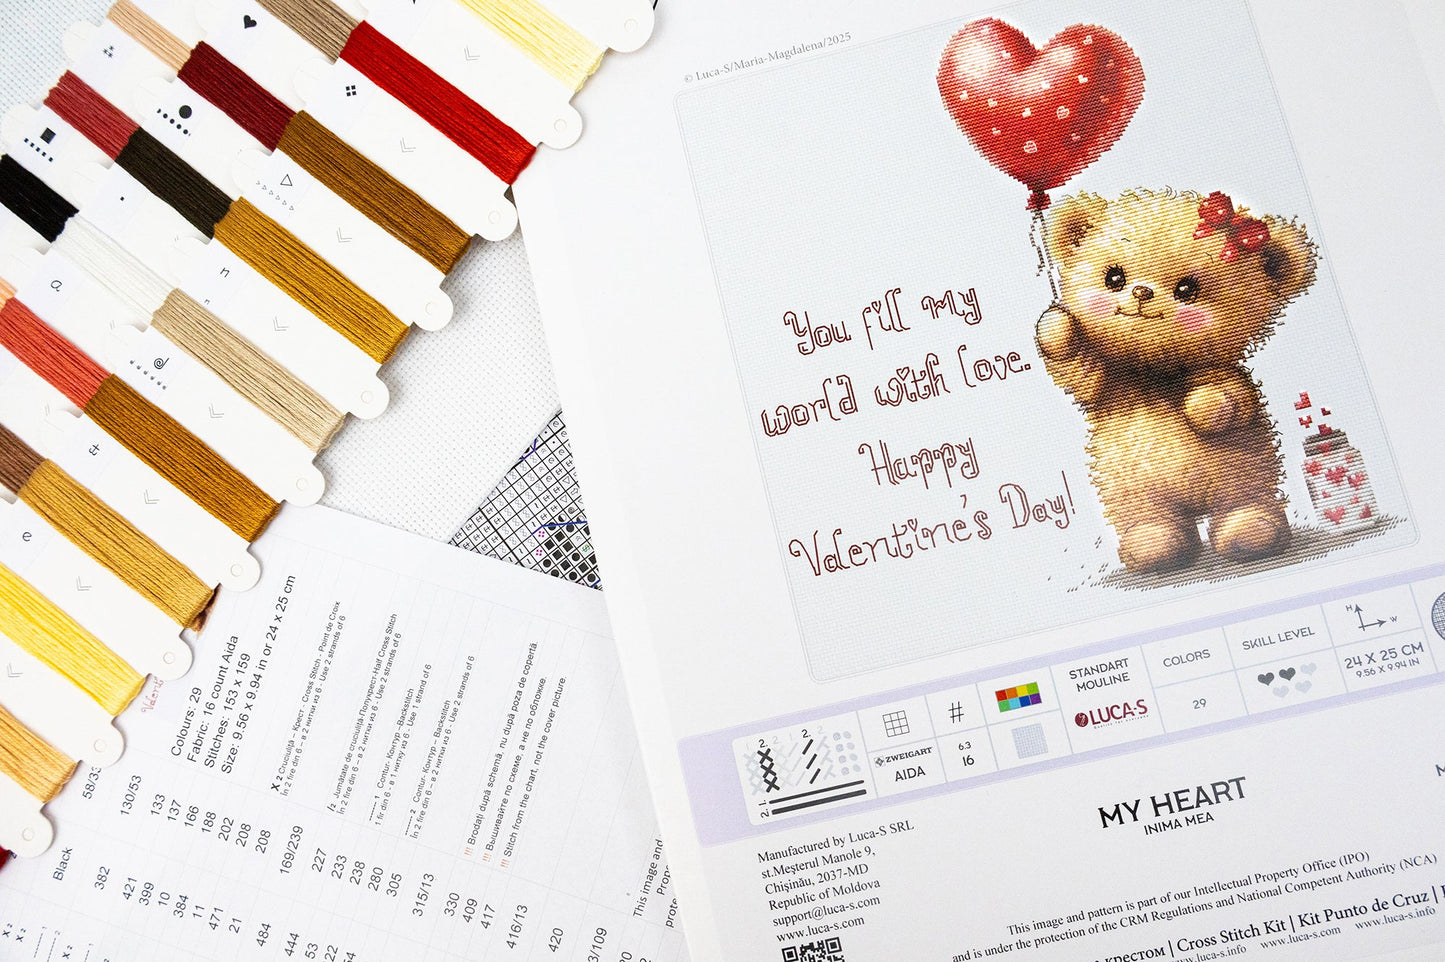 © Luca-S/Maria-Magdalena/2025
You fill my
world with love.
Happy
Valentine's Day!
a
n
@
e
2.
2.
2. 1.
#
ZWEIGART
AIDA
6.3
16
STANDART
MOULINE
LUCA-S
COLORS
29
SKILL LEVEL
H
W
24 X 25 CM
9.56 X 9.94 IN
MY HEART
INIMA MEA
Manufactured by Luca-S SRL
st.Meşterul Manole 9,
Chişinău, 2037-MD
Republic of Moldova
support@luca-s.com
www.luca-s.com
This image and pattern is part of our Intellectual Property Office (IPO)
and is under the protection of the CRM Regulations and National Competent Authority (NCA)
крестом | Cross Stitch Kit | Kit Punto de Cruz |
www.luca-s.info www.luca-s.com www.luca-s.info
Colours: 29
Fabric: 16 count Aida
Stitches: 153 x 159
Size: 9.56 x 9.94 in or 24 x 25 cm
X 2 Cruciuliță – Крест - Cross Stitch - Point de Croix
În 2 fire din 6 – в 2 нитки из 6 - Use 2 strands of 6
/2 Jumătate de cruciuliță-Полукрест-Half Cross Stitch
În 2 fire din 6 - в 2 нитки из 6 - Use 2 strands of 6
1 Contur- Контур –Backstitch
1 fir din 6 - в 1 нитку из 6 - Use 1 strand of 6
2 Contur- Контур – Backstitch
În 2 fire din 6 – в 2 нитки из 6 - Use 2 strands of 6
!!! Brodați după schemă, nu după poza de copertă.
!!! Вышивайте по схеме, а не по обложке.
!!! Stitch from the chart, not the cover picture
58/33
130/53
133
137
166
188
202
208
208
169/239
227
233
238
280
305
315/13
330
409
417
416/13
420
3/109
Black
382
421
399
10
384
11
471
21
484
444
53
22
54
X 2
X 2
This image and
Prope
prote